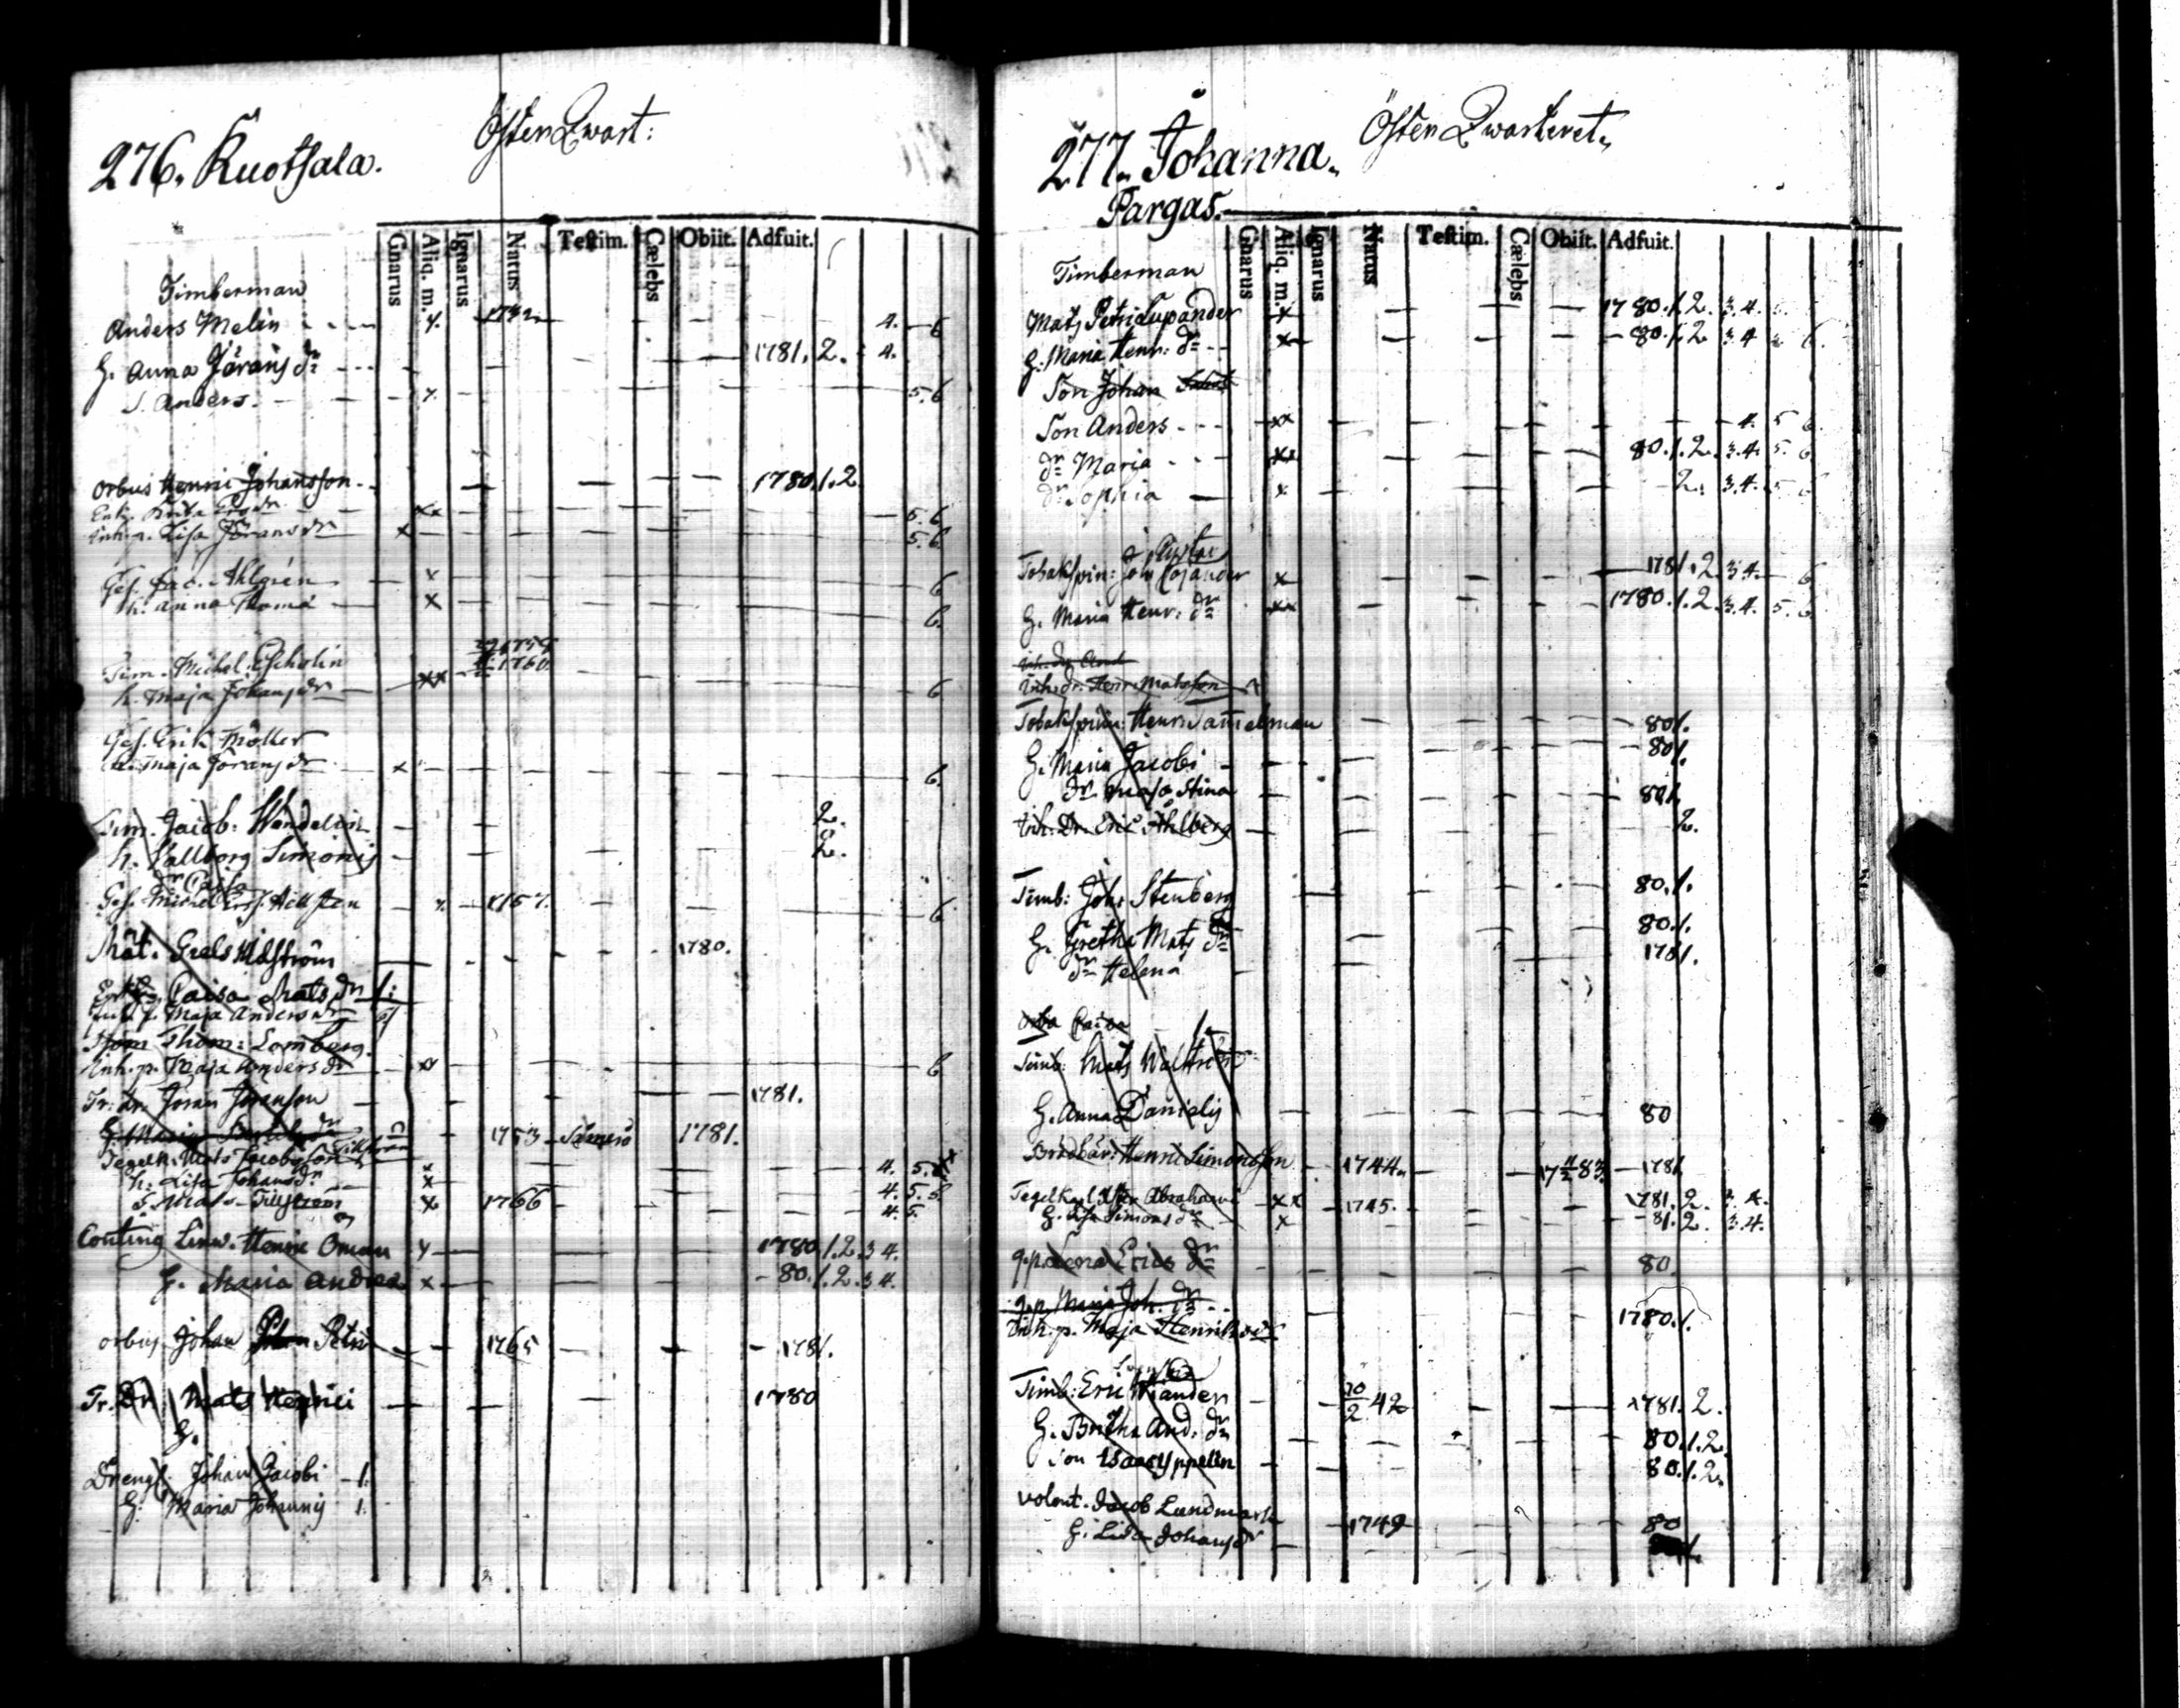 276. Kuotsala.
Östen Qwart:
Gnarus Aliq. m. Ignarus Natus Testim. Cælebs Obiit. Adfuit.
Timberman
Anders Melin x. 1732 4. 6
H. Anna Görans dr 1781. 2. 4.
S. Anders x. 5. 6
Orbus Henric Johansson 1780. 1. 2
xx 5. 6
Inh. p. Lisa Göransdr x 5. 6.
Ges. Jac. Ahlgrén x 6
h. Anna Thomæ x 6.
Tim. Michel 1760
h. Maja Johansdr xx 6
Ges. Erik Möller
h. Maja Göransdr x 6.
Tim. Jacob: Wendelin 2.
h. Wallborg Simonis 2.
dr Caisa
Ges. Michel Hellsten x. 1757. 6
Mat. Grels Widström 1780.
Caisa Mats dr
Maja Andersdr
Thom: Lomberg
Inh. p. Maja Anders dr xx 6
Tr. dr. Jöran Jöransson 1781.
H. Maria 1753 1781.
Tegelk. Mats Jacobsson 4. 5.
h. Lisa Johansdr x 4. 5.
S. Mats x 1766 4. 5.
Conting Henric Öman x 1780. 1. 2. 3 4.
H. Maria Andreæ x 80. 1. 2. 3 4.
orbus Johan Petri 1765 1781.
Tr. Dr. Mats Henrici 1780
H.
Dreng. Johan Jacobi 1.
H. Maria Johannis 1.
277. Johanna.
Pargas.
Östen Qwarteret.
Gnarus Aliq. m. Ignarus Natus Testim. Cælebs Obiit. Adfuit.
Timberman
Mats Petri Lupander x 1780. 1. 2. 3. 4.
H. Maria Henr: dr x 80. 1. 2. 3 4 6.
Son Johan
Son Anders xx 4. 5 6.
dr Maria xx 80. 1. 2. 3. 4. 5. 6
dr Sophia x 2. 3. 4. 5 6
Tobakspin: Joh Cajander x 1781. 2. 3. 4. 6
H. Maria Henr: dr xx 1780. 1. 2. 3. 4. 5. 6
Inh. dr. And
Inh. dr. Henr. Matsson
Tobakspinn: Henric Amelman 80 1.
H. Maria Jacobi 80 1.
dr Maja Stina 80 1.
Inh. Dr. Eric Ahlberg 2.
Timb: Joh. Stenberg 80. 1.
H. Gretha Mats dr 80. 1.
dr Helena 1781.
Orba Caisa
Timb: Mats
H. Anna Daniels 80
Brödbär: Henric Simonsson 1744. 17 4/2 83. 1781
Tegelkarl Abrahami xx 1745. 1781. 2. 3. 4.
H. Lisa Simons dr x 81. 2. 3. 4.
q. p. Lena Erics dr 80.
q. p. Maria Joh. dr 1780. 1.
Inh. p. Maja Henriksdr
Timb: Eric Wiander 20/2 42 1781. 2.
H. Britha And. dr 80. 1. 2.
Son Isaac Yppelin 80. 1. 2.
Volont. Jacob Lundmark 1749 80
H. Lisa Johansdr 1.